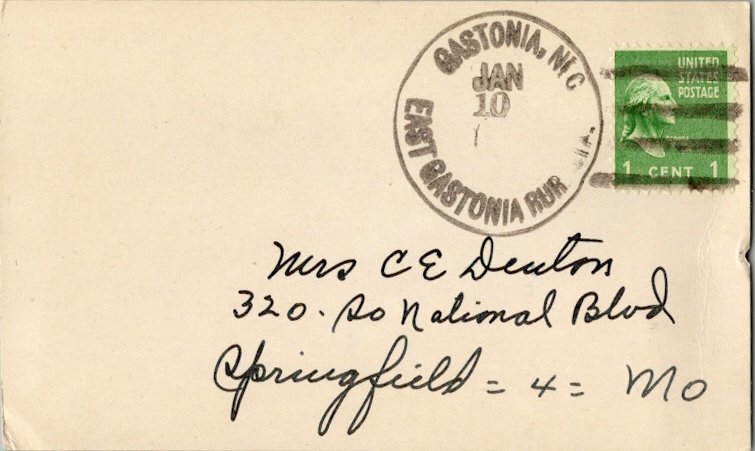 GASTONIA, N C
JAN
10
EAST GASTONIA RUR STA.
UNITED
STATES
POSTAGE
1 CENT 1
Mrs C E Denton
320 - So National Blvd
Springfield = 4 = Mo